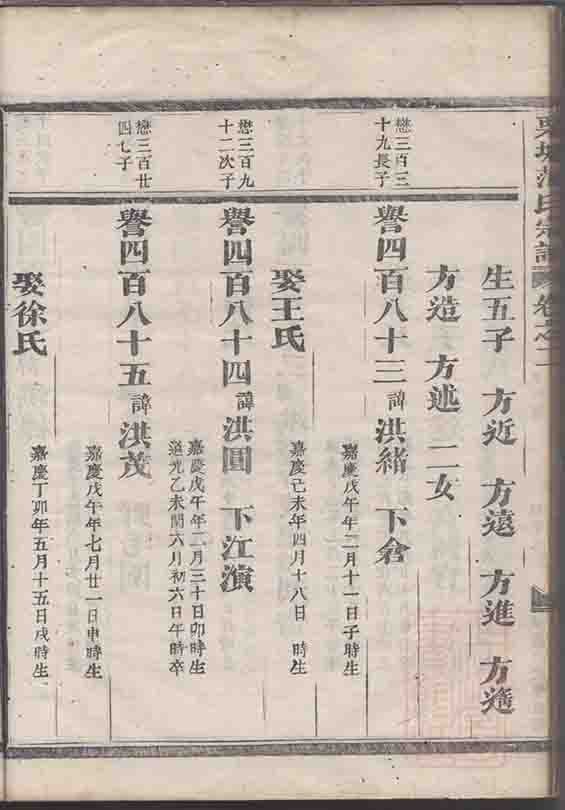 氏宗譜 卷之二
生五子 方近 方遠 方進 方
方造 方述 二女
懋三百三
十九長子
譽四百八十三 諱洪緒 下倉
嘉慶戊午年二月十一日子時生
娶王氏
嘉慶己未年四月十八日 時生
懋三百九
十二次子
譽四百八十四 諱洪圖 下江演
嘉慶戊午年二月三十日卯時生
道光乙未閏六月初六日午時卒
懋三百廿
四七子
譽四百八十五 諱洪茂
嘉慶戊午年七月廿一日申時生
娶徐氏
嘉慶丁卯年五月十五日戌時生